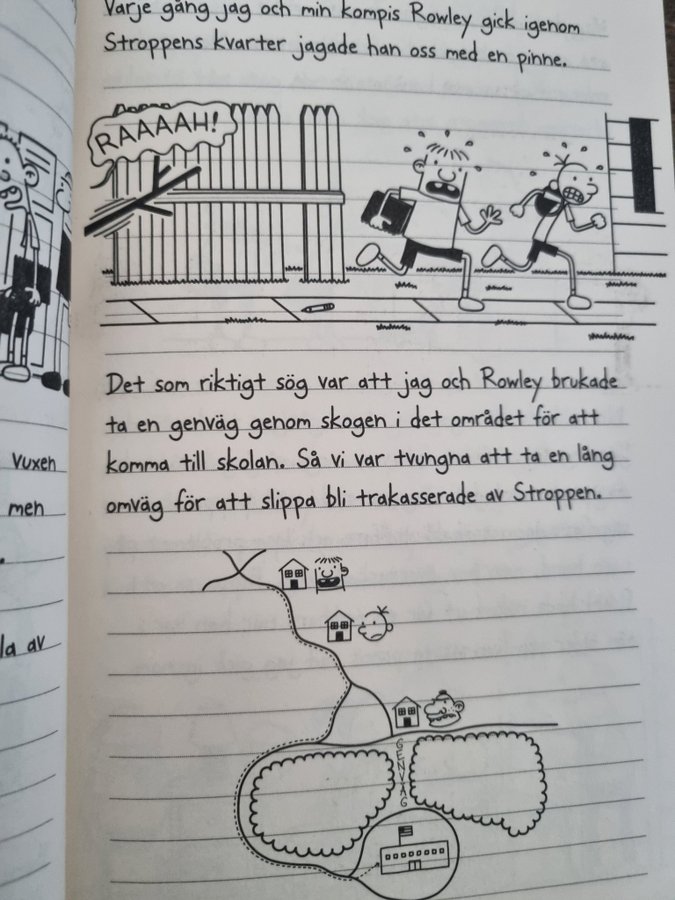 Varje gång jag och min kompis Rowley gick igenom
Stroppens kvarter jagade han oss med en pinne.
RAAAAH!
Det som riktigt sög var att jag och Rowley brukade
ta en genväg genom skogen i det området för att
komma till skolan. Så vi var tvungna att ta en lång
omväg för att slippa bli trakasserade av Stroppen.
vuxen
men
la av
GENVÄG